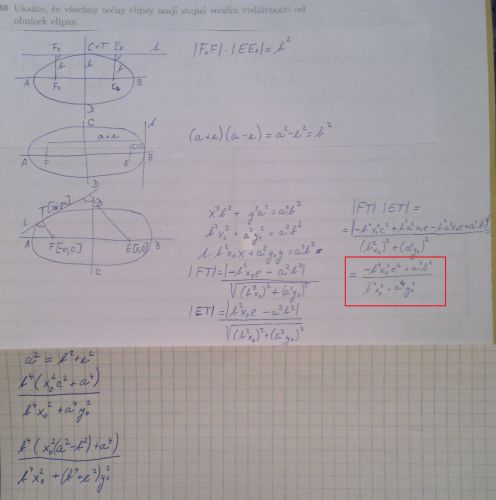 36 Ukažte, že všechny tečny elipsy mají stejný součin vzdáleností od
ohnisek elipsy.
F₀ C=T E₀ t
b b b
A F₀ E₀ B
D
|F₀F|·|EE₀|=b²
C t
a+e
A F E B
D
(a+e)(a-e)=a²-e²=b²
t T[x₀,y₀] D
A F[-e,0] E[e,0] B
C
x²b² + y²a² = a²b²
b²x₀² + a²y₀² = a²b²
t: b²x₀x + a²y₀y = a²b²
|FT| = |-b²x₀e - a²b²|
√(b²x₀)² + (a²y₀)²
|ET| = |b²x₀e - a²b²|
√(b²x₀)² + (a²y₀)²
|FT|·|ET| =
= |-b⁴x₀²e² + b²a²b²x₀e - b²a²b²x₀e + a⁴b⁴|
(b²x₀)² + (a²y₀)²
= -b⁴x₀²e² + a⁴b⁴
b⁴x₀² + a⁴y₀²
a² = b² + e²
b⁴(x₀²e² + a⁴)
b⁴x₀² + a⁴y₀²
b⁴(x₀²(a²-b²) + a⁴)
b⁴x₀² + (b⁴+e²)y₀²